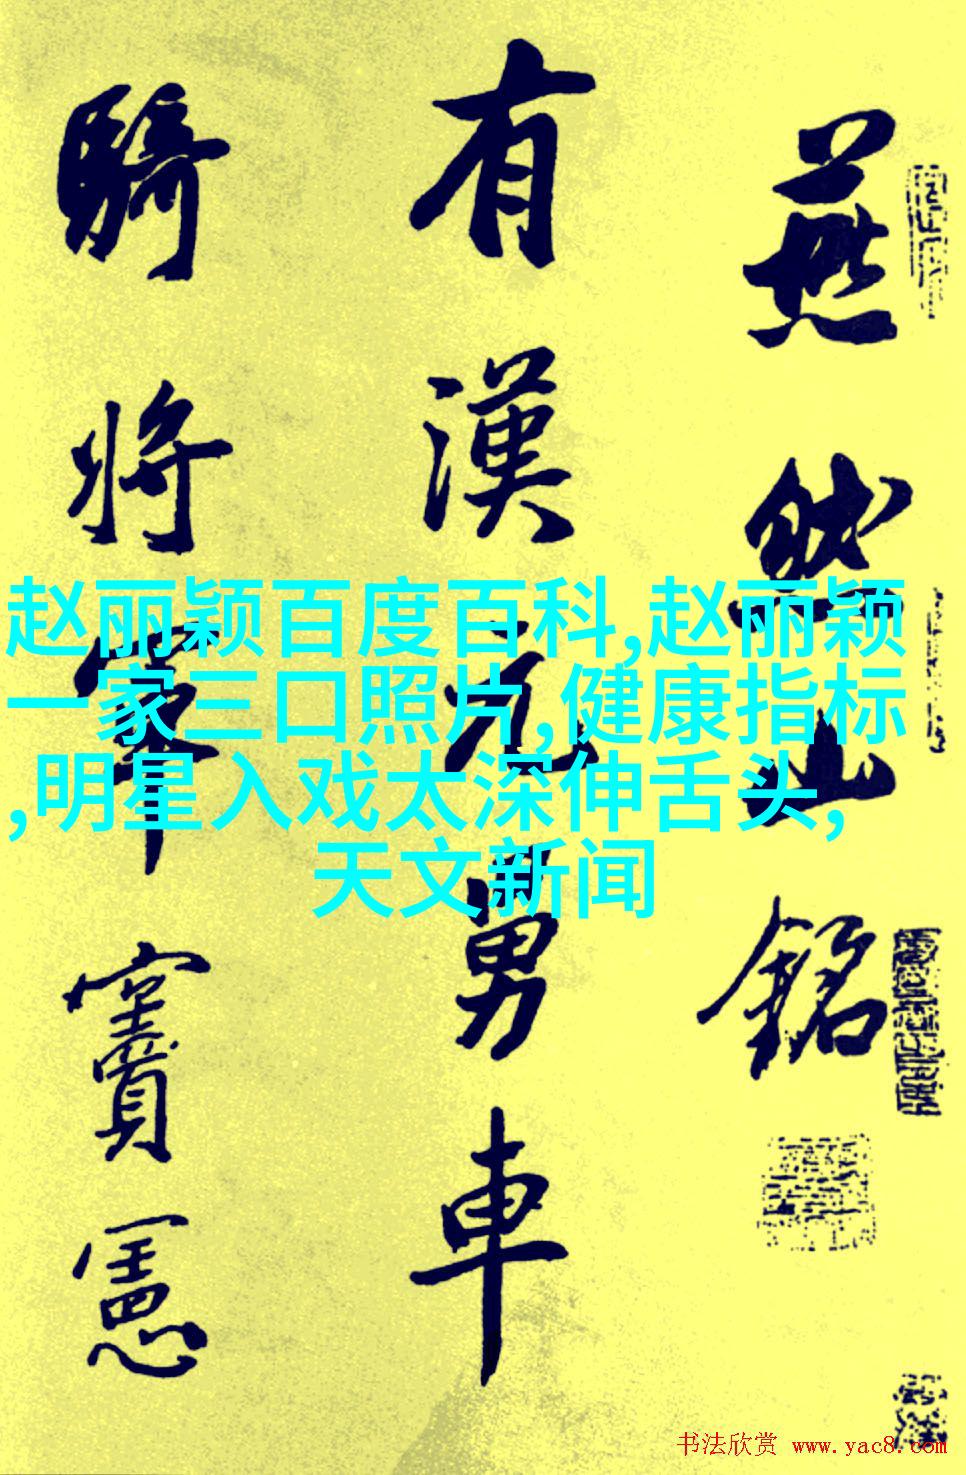 燕然山銘
有漢元舅車
騎將軍竇憲
赵丽颖百度百科,赵丽颖
一家三口照片,健康指标
,明星入戏太深伸舌头,
天文新闻
书法欣赏 www.yac8.com